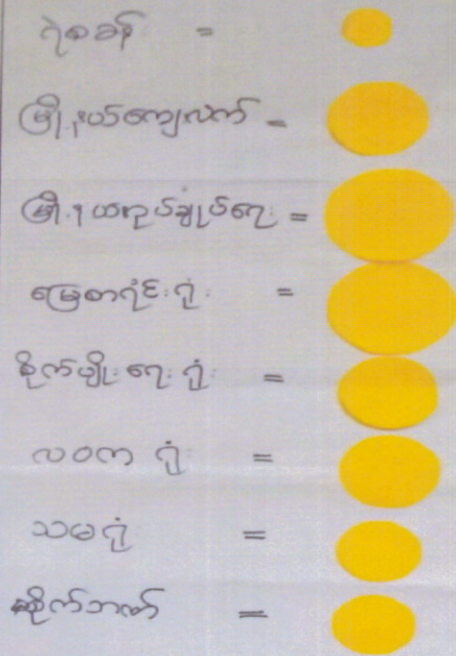 ရဲစခန်း =
မြို့နယ်ကျေးလက် =
မြို့နယ်အုပ်ချုပ်ရေး =
မြေစာရင်းရုံး =
စိုက်ပျိုးရေးရုံး =
လဝက ရုံး =
သမရုံး =
ဆိုက်ဘဏ် =